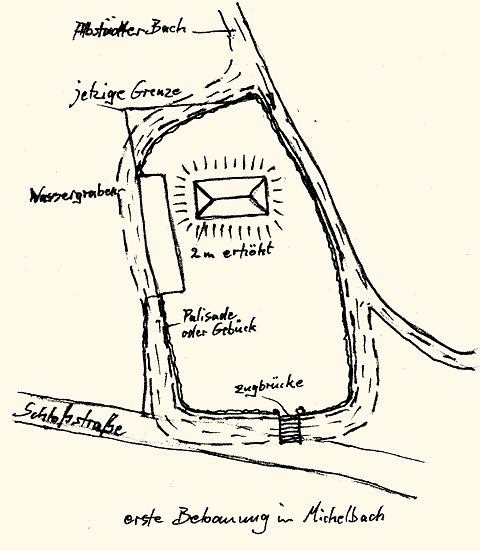 Albstädter Bach
jetzige Grenze
Wassergraben
2 m erhöht
Palisade
oder Gebück
Zugbrücke
Schloßstraße
erste Bebauung in Michelbach